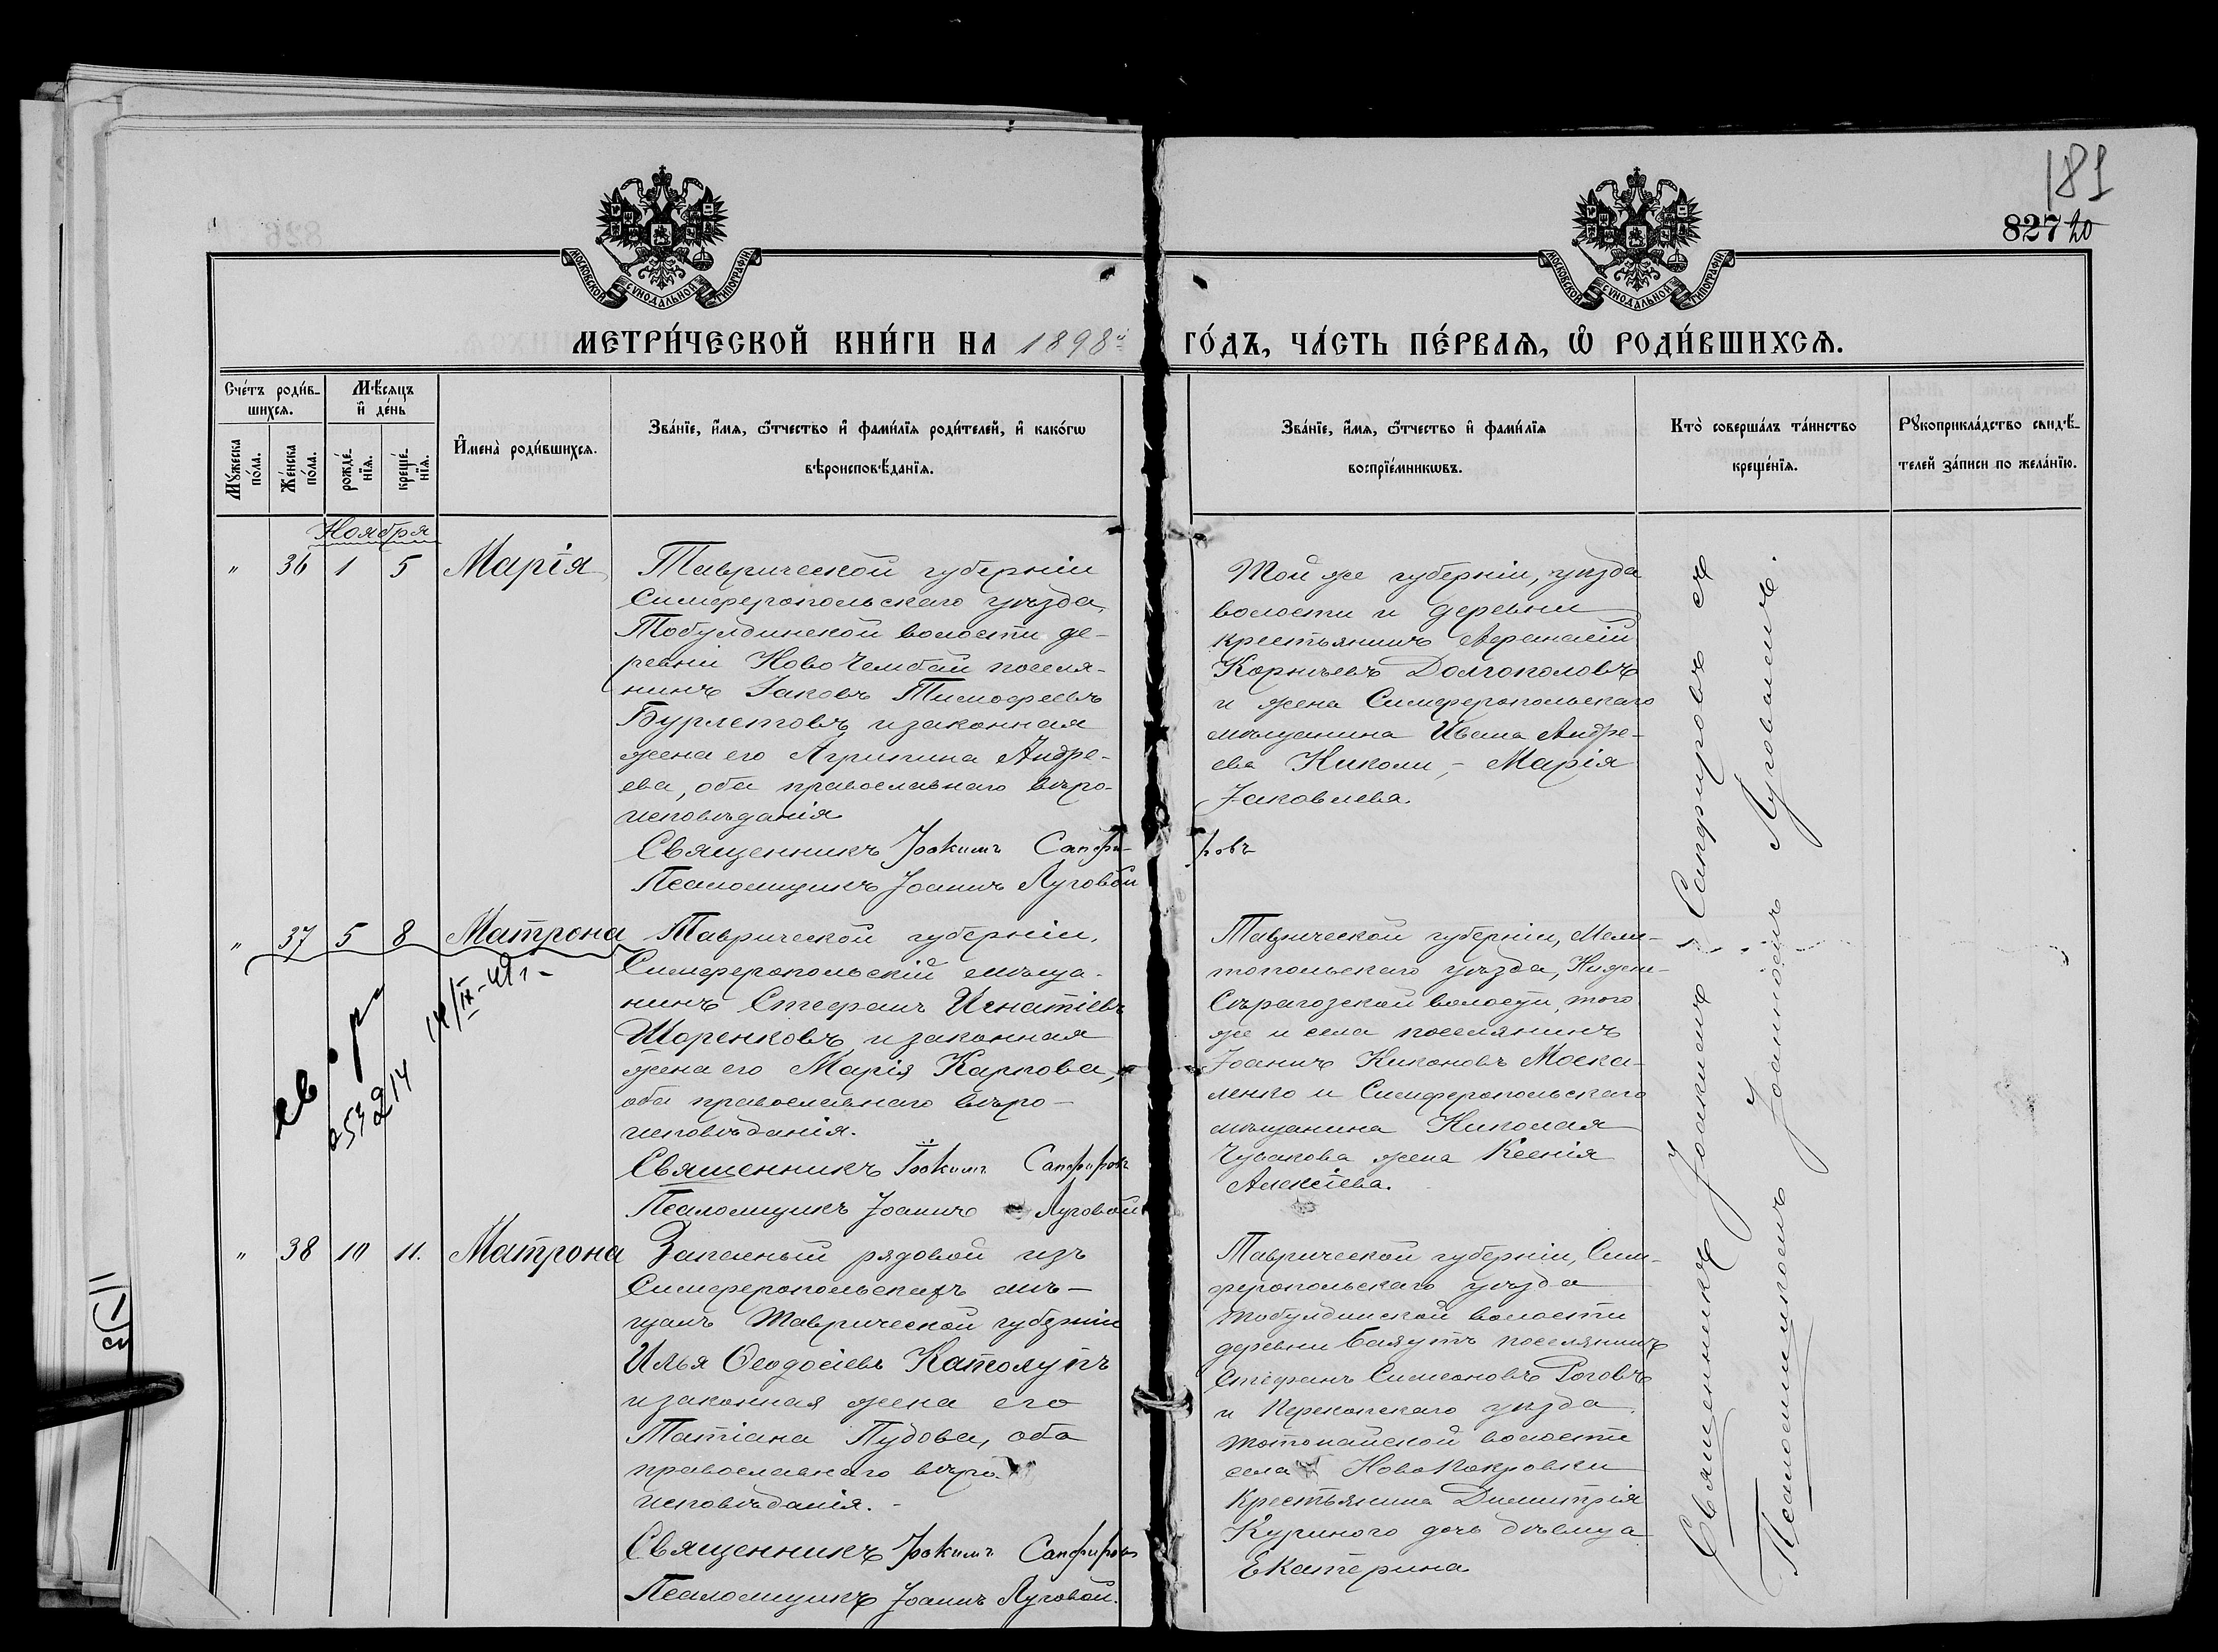 181
827 20
МОСКОВСКОЙ СУНОДАЛЬНОЙ ТИПОГРАФІИ
МОСКОВСКОЙ СУНОДАЛЬНОЙ ТИПОГРАФІИ
МЕТРИ́ЧЕСКОЙ КНИ́ГИ НА 1898й ГО́ДЪ, ЧА́СТЬ ПЕ́РВАѦ, Ѡ РОДИ́ВШИХСѦ.
Сче́тъ роди́в-
шихсѧ.
Мѣ́сѧцъ
и҆ де́нь
Мꙋ́жеска
по́ла.
Же́нска
по́ла.
рожде́-
нїѧ.
креще́-
нїѧ.
И҆мена̀ роди́вшихсѧ.
Зва́нїе, и҆́мѧ, ѻ҆́тчество и҆ фами́лїѧ роди́телей, и҆ како́гѡ
вѣроисповѣ́данїѧ.
Зва́нїе, и҆́мѧ, ѻ҆́тчество и҆ фами́лїѧ
воспрїе́мникѡвъ.
Кто̀ соверша́лъ та́инство
креще́нїѧ.
Рꙋкоприкла́дство свидѣ́-
телей за́писи по жела́нїю.
Ноября
" 36 1 5 Марія
Таврической губерніи
Симферопольскаго уѣзда,
Тобулдинской волости де-
ревни Ново Чембай поселя-
нинъ Іаковъ Тимофеевъ
Бурлетовъ и законная
жена его Агрипина Андре-
ева, оба православнаго вѣро-
исповѣданія
Священникъ Іоакимъ Сапфи-
ровъ
Псаломщикъ Іоаннъ Луговой
Той же губерніи, уѣзда
волости и деревни
крестьянинъ Афанасій
Корнѣевъ Долгополовъ
и жена Симферопольскаго
мѣщанина Ивана Андре-
ева Николи, - Марія
Іаковлева.
" 37 5 8 Матрона
св. р
253214
14/IX-49 г. -
Таврической губерніи,
Симферопольскій мѣща-
нинъ Стефанъ Игнатіевъ
Шоренковъ и законная
жена его Марія Карпова,
оба православнаго вѣро-
исповѣданія.
Священникъ Іоакимъ Сапфировъ
Псаломщикъ Іоаннъ Луговой
Таврической губерніи, Мели-
топольскаго уѣзда, Нижне-
Сѣрагозской волости, того
же и села поселянинъ
Іоаннъ Никоновъ Моска-
ленко и Симферопольскаго
мѣщанина Николая
жена Ксенія
Алексіева.
" 38 10 11. Матрона
Запасный рядовой изъ
Симферопольскихъ мѣ-
щанъ Таврической губерніи
Илья Ѳеодосіевъ Католупъ
и законная жена его
Татіана Пудова, оба
православнаго вѣро-
исповѣданія. -
Священникъ Іоакимъ Сапфировъ
Псаломщикъ Іоаннъ Луговой.
Таврической губерніи, Сим-
феропольскаго уѣзда
Тобулдинской волости
деревни Баяутъ поселянинъ
Стефанъ Симеоновъ Роговъ
и Перекопскаго уѣзда
волости
села НовоПокровки
Крестьянина Димитрія
Куриного дочь дѣвица
Екатерина
Священникъ Іоакимъ Сапфировъ съ
Псаломщикомъ Іоанномъ Луговымъ.